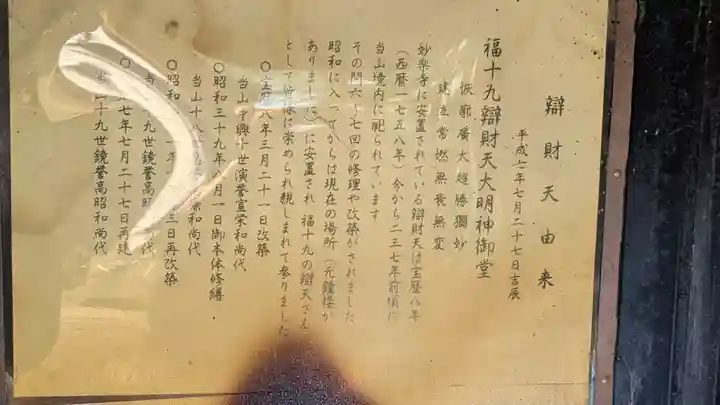 辯財天由来
平成七年七月二十七日吉辰
福十九辯財天大明神御堂
恢廓廣大超勝獨妙
建立常然無衰無変
妙楽寺に安置されている辯財天は宝暦八年
(西暦一七五八年)今から二三七年前頃に
当山境内に祀られています
その間六~七回の修理や改築がされました
昭和に入ってからは現在の場所(元鐘楼が
ありました)に安置され 福十九の辯天さん
として皆様に崇められ親しまれて参りました
〇宝暦八年三月二十一日改築
当山中興十世演誉宣栄和尚代
〇昭和三十九年八月一日御本体修繕
当山十八世 和尚代
〇昭和 年 三日再改築
当 九世鏡誉高 代
〇 七年七月二十七日再建
当山十九世鏡誉高昭和尚代